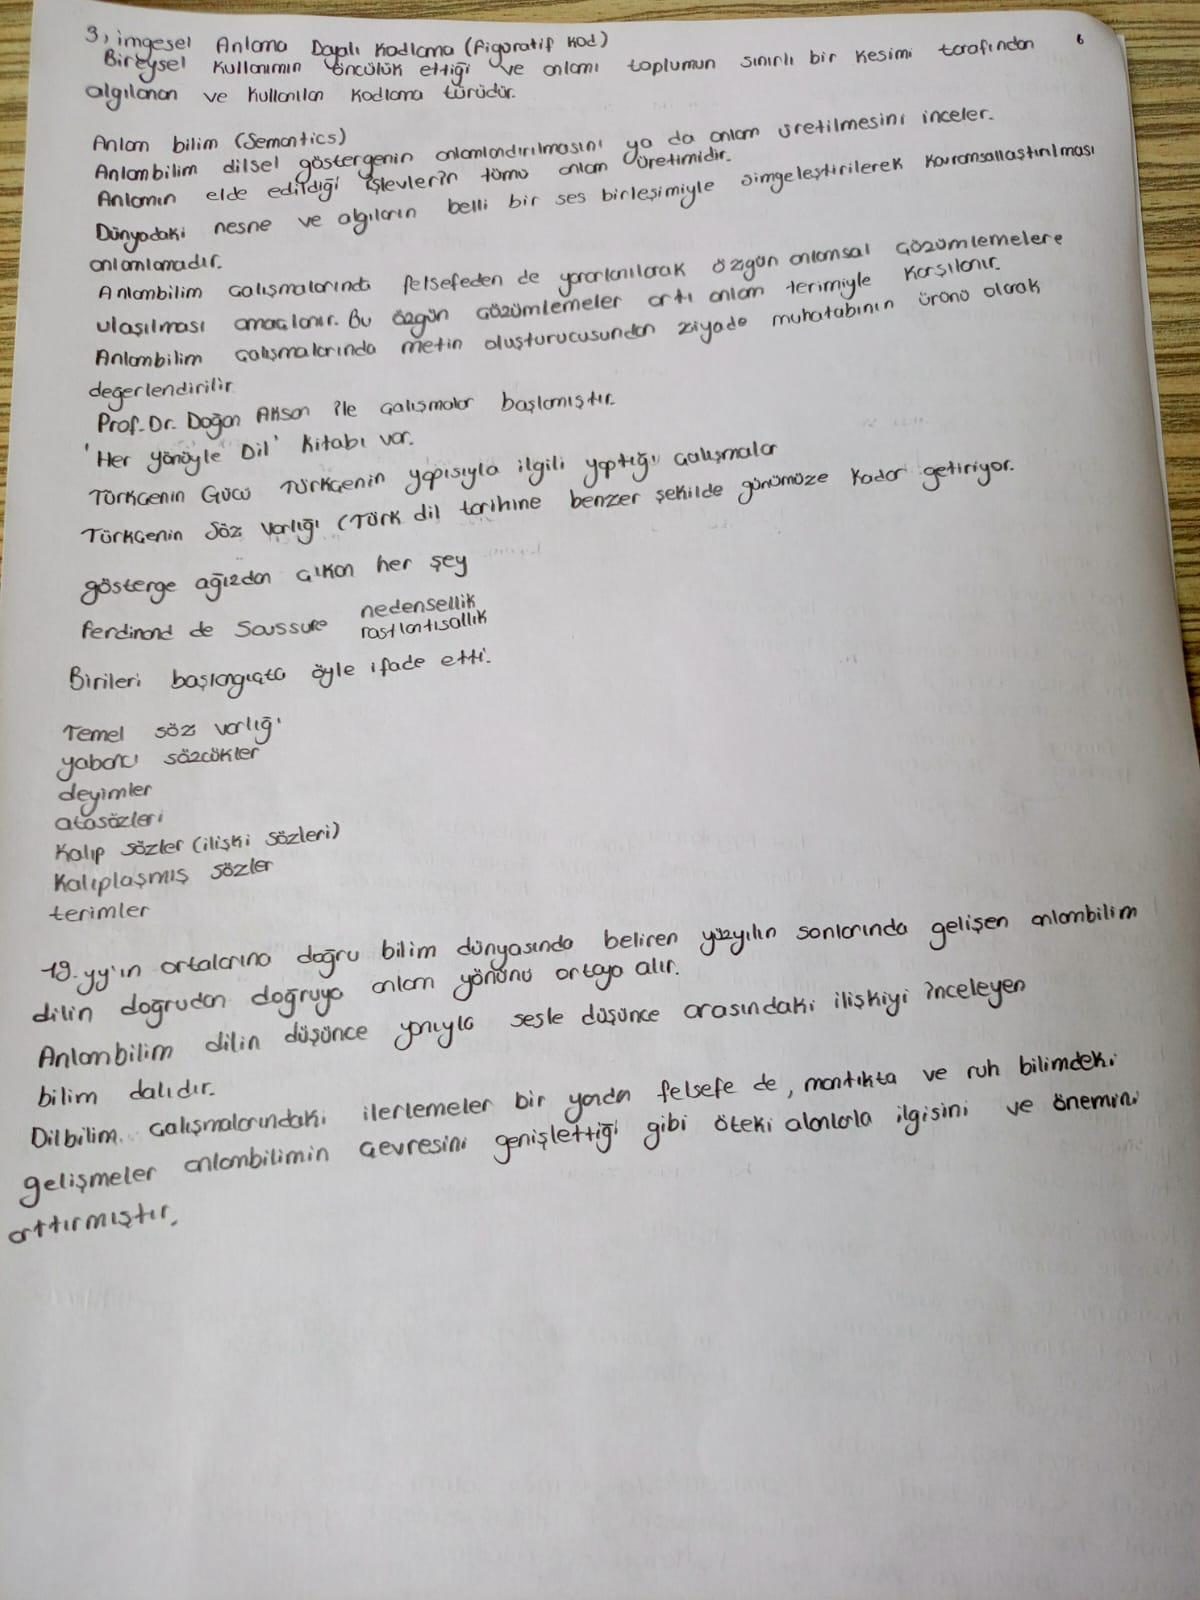 6
3, imgesel Anlama Dayalı Kodlama (Figüratif Kod)
Bireysel kullanımın öncülük ettiği ve anlamı toplumun sınırlı bir kesimi tarafından
algılanan ve kullanılan kodlama türüdür.
Anlam bilim (Semantics)
Anlambilim dilsel göstergenin anlamlandırılmasını ya da anlam üretilmesini inceler.
Anlamın elde edildiği işlevlerin tümü anlam üretimidir.
Dünyadaki nesne ve algıların belli bir ses birleşimiyle simgeleştirilerek kavramsallaştırılması
anlamlamadır.
Anlambilim çalışmalarında felsefeden de yararlanılarak özgün anlamsal çözümlemelere
ulaşılması amaçlanır. Bu özgün çözümlemeler artı anlam terimiyle karşılanır.
Anlambilim çalışmalarında metin oluşturucusundan ziyade muhatabının ürünü olarak
değerlendirilir
Prof. Dr. Doğan Aksan ile çalışmalar başlamıştır.
'Her yönüyle Dil' kitabı var.
Türkçenin Gücü Türkçenin yapısıyla ilgili yaptığı çalışmalar
Türkçenin Söz Varlığı (Türk dil tarihine benzer şekilde günümüze kadar getiriyor.
gösterge ağızdan çıkan her şey
Ferdinand de Saussure nedensellik
rastlantısallık
Birileri başlangıçta öyle ifade etti.
Temel söz varlığı
yabancı sözcükler
deyimler
atasözleri
Kalıp sözler (ilişki sözleri)
Kalıplaşmış sözler
terimler
19. yy'ın ortalarına doğru bilim dünyasında beliren yüzyılın sonlarında gelişen anlambilim
dilin doğrudan doğruya anlam yönünü ortaya alır.
Anlambilim dilin düşünce yanıyla sesle düşünce arasındaki ilişkiyi inceleyen
bilim dalıdır.
Dilbilim çalışmalarındaki ilerlemeler bir yandan felsefe de, mantıkta ve ruh bilimdeki
gelişmeler anlambilimin çevresini genişlettiği gibi öteki alanlarla ilgisini ve önemini
arttırmıştır.